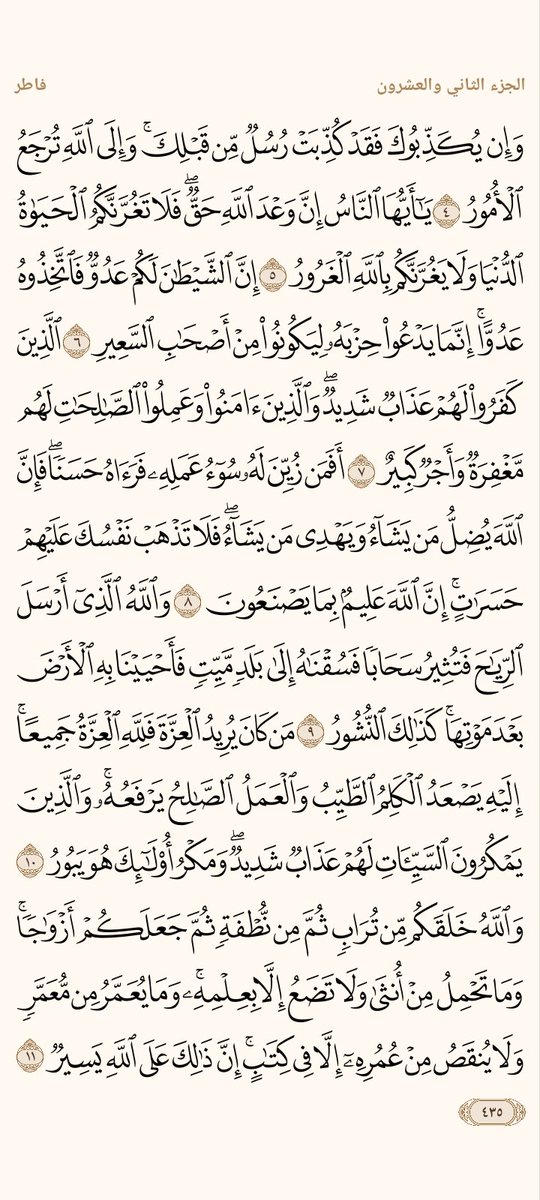 الجزء الثاني والعشرون فاطر
وَإِن يُكَذِّبُوكَ فَقَدْ كُذِّبَتْ رُسُلٌ مِّن قَبْلِكَ ۚ وَإِلَى ٱللَّهِ تُرْجَعُ
ٱلْأُمُورُ ٤ يَـٰٓأَيُّهَا ٱلنَّاسُ إِنَّ وَعْدَ ٱللَّهِ حَقٌّ ۖ فَلَا تَغُرَّنَّكُمُ ٱلْحَيَوٰةُ
ٱلدُّنْيَا وَلَا يَغُرَّنَّكُم بِٱللَّهِ ٱلْغَرُورُ ٥ إِنَّ ٱلشَّيْطَـٰنَ لَكُمْ عَدُوٌّ فَٱتَّخِذُوهُ
عَدُوًّا ۚ إِنَّمَا يَدْعُوا۟ حِزْبَهُۥ لِيَكُونُوا۟ مِنْ أَصْحَـٰبِ ٱلسَّعِيرِ ٦ ٱلَّذِينَ
كَفَرُوا۟ لَهُمْ عَذَابٌ شَدِيدٌ ۖ وَٱلَّذِينَ ءَامَنُوا۟ وَعَمِلُوا۟ ٱلصَّـٰلِحَـٰتِ لَهُم
مَّغْفِرَةٌ وَأَجْرٌ كَبِيرٌ ٧ أَفَمَن زُيِّنَ لَهُۥ سُوٓءُ عَمَلِهِۦ فَرَءَاهُ حَسَنًا ۖ فَإِنَّ
ٱللَّهَ يُضِلُّ مَن يَشَآءُ وَيَهْدِى مَن يَشَآءُ ۖ فَلَا تَذْهَبْ نَفْسُكَ عَلَيْهِمْ
حَسَرَٰتٍ ۚ إِنَّ ٱللَّهَ عَلِيمٌۢ بِمَا يَصْنَعُونَ ٨ وَٱللَّهُ ٱلَّذِىٓ أَرْسَلَ
ٱلرِّيَـٰحَ فَتُثِيرُ سَحَابًا فَسُقْنَـٰهُ إِلَىٰ بَلَدٍ مَّيِّتٍ فَأَحْيَيْنَا بِهِ ٱلْأَرْضَ
بَعْدَ مَوْتِهَا ۚ كَذَٰلِكَ ٱلنُّشُورُ ٩ مَن كَانَ يُرِيدُ ٱلْعِزَّةَ فَلِلَّهِ ٱلْعِزَّةُ جَمِيعًا ۚ
إِلَيْهِ يَصْعَدُ ٱلْكَلِمُ ٱلطَّيِّبُ وَٱلْعَمَلُ ٱلصَّـٰلِحُ يَرْفَعُهُۥ ۚ وَٱلَّذِينَ
يَمْكُرُونَ ٱلسَّيِّـَٔاتِ لَهُمْ عَذَابٌ شَدِيدٌ ۖ وَمَكْرُ أُو۟لَـٰٓئِكَ هُوَ يَبُورُ ١٠
وَٱللَّهُ خَلَقَكُم مِّن تُرَابٍ ثُمَّ مِن نُّطْفَةٍ ثُمَّ جَعَلَكُمْ أَزْوَٰجًا ۚ
وَمَا تَحْمِلُ مِنْ أُنثَىٰ وَلَا تَضَعُ إِلَّا بِعِلْمِهِۦ ۚ وَمَا يُعَمَّرُ مِن مُّعَمَّرٍ
وَلَا يُنقَصُ مِنْ عُمُرِهِۦٓ إِلَّا فِى كِتَـٰبٍ ۚ إِنَّ ذَٰلِكَ عَلَى ٱللَّهِ يَسِيرٌ ١١
٤٣٥